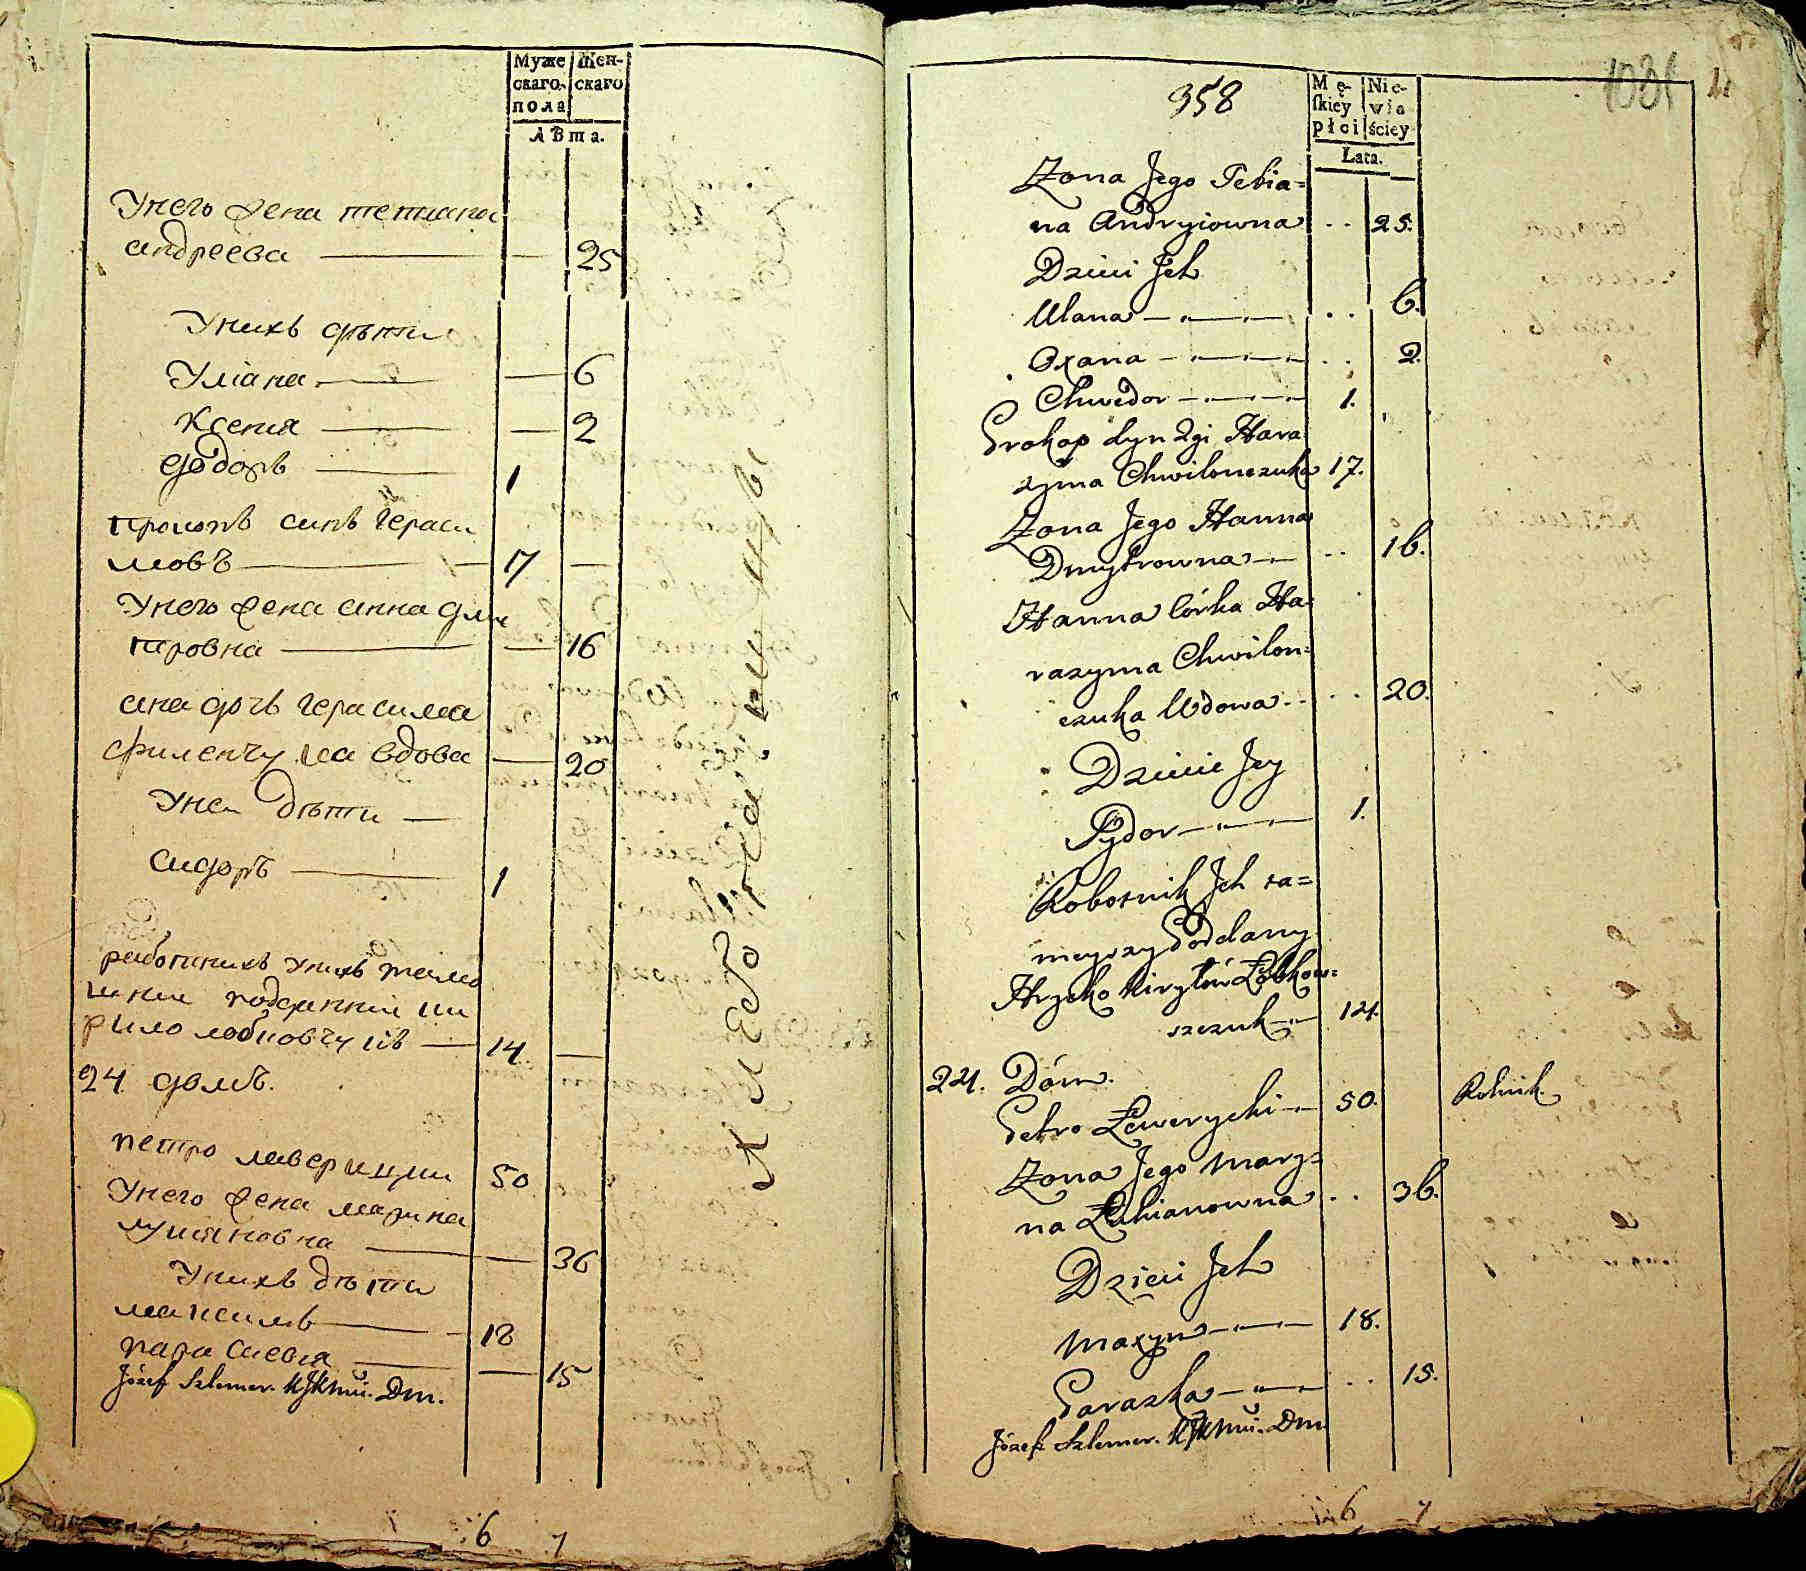 Муже Жен-
скаго скаго
пола
Лѣта.
Унего жена тетиана
андреева 25
Унихъ дѣти
Улiана 6
Ксения 2
Федоръ 1
Прокопъ синъ Гераси
мовъ 17
Унего жена анна дми
тровна 16
ана дочъ герасима
Филенчука вдова 20
Унеи дѣти
сидоръ 1
работникъ унихъ
подданний ки
рило лобковчукъ 14
24 домъ.
петро лаверицки 50
Унего жена марина
лукяновна 36
Унихъ дѣти
максимъ 18
параскевия 15
Józef Szlemer. Dm.
6 7
358
1031
Mę- Nie-
skiey wia
płci ściey
Lata.
Żona Jego Tetia=
na Andryiowna .. 25.
Dzieci Jch
Ulana .. 6.
Oxana .. 2.
Chwedor 1.
Prokop Syn 2gi Hara
zyma Chwilonczuka 17.
Żona Jego Hanna
Dmytrowna .. 16.
Hanna Córka Ha=
razyma Chwilon=
czuka Wdowa .. 20.
Dzieci Jey
Sydor 1.
Robotnik Jch ta=
meyszy Poddany
Hryćko Kiryłów Łobkow=
szczuk 14.
24. Dóm.
Petro Ławerycki 50. Rolnik
Żona Jego Mary=
na Łukianowna .. 36.
Dzieci Jch
Maxym 18.
Paraska .. 15.
Józef Szlemer. Dm.
6 7